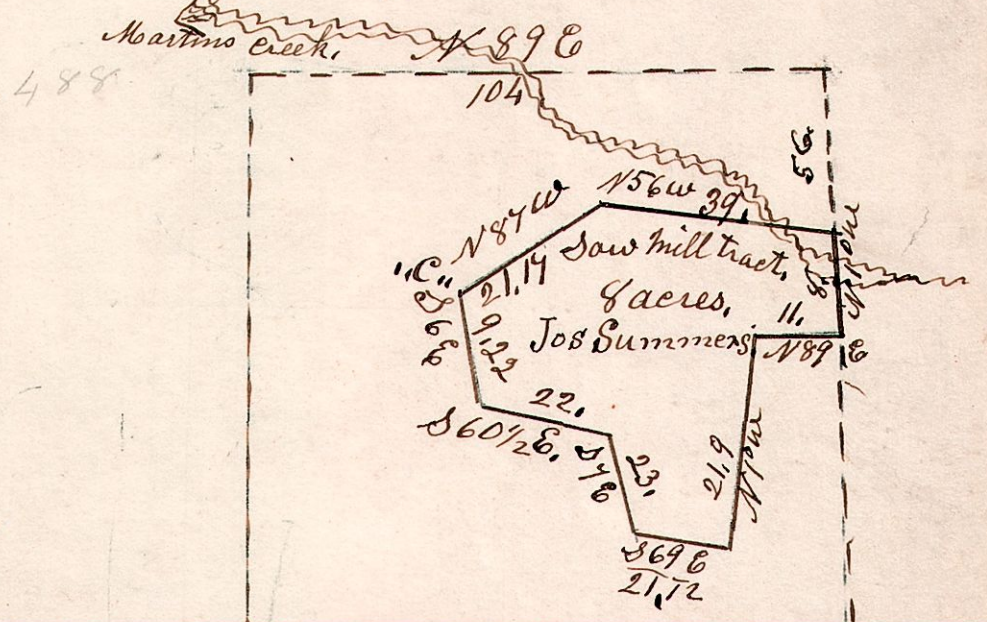 Martins Creek.
N 89 E
104
488
56
N56W
39.
N87W
21,14
"C"
Saw Mill tract.
8 acres.
Jos Summers
8
11.
N89 E
S6E
9,22
22.
S60½E.
S7E
23.
21,9
S69E
21,72